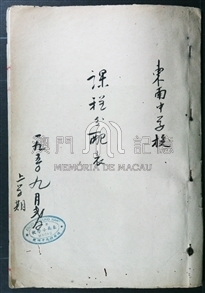 東南中學校
課程分配表
一九五〇九月
上学期
澳門記憶
MEMÓRIA DE MACAU